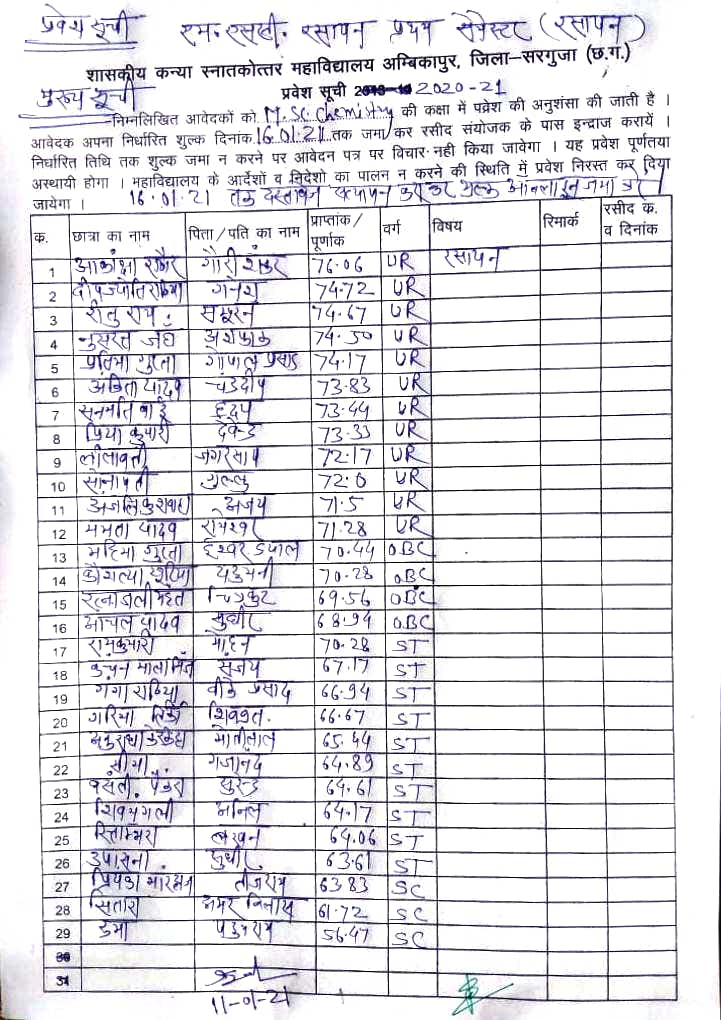 प्रवेश सूची एम. एससी. रसायन प्रथम सेमेस्टर (रसायन)
शासकीय कन्या स्नातकोत्तर महाविद्यालय अम्बिकापुर, जिला–सरगुजा (छ.ग.)
मुख्य सूची प्रवेश सूची 2020-21
निम्नलिखित आवेदकों को M.Sc. Chemistry की कक्षा में पव्रेश की अनुशंसा की जाती है ।
आवेदक अपना निर्धारित शुल्क दिनांक 16.01.21 तक जमा कर रसीद संयोजक के पास इन्द्राज करायें ।
निर्धारित तिथि तक शुल्क जमा न करने पर आवेदन पत्र पर विचार नही किया जावेगा । यह प्रवेश पूर्णतया
अस्थायी होगा । महाविद्यालय के आर्देशों व निदेशो का पालन न करने की स्थिति में प्रवेश निरस्त कर दिया
जायेगा । 16.01.21 तक दस्तावेज सत्यापन करा कर शुल्क आनलाइन जमा करें
क. छात्रा का नाम पिता / पति का नाम प्राप्तांक / पूर्णाक वर्ग विषय रिमार्क रसीद क. व दिनांक
1 आकांक्षा गौरी शंकर 76.06 UR रसायन
2 दीपज्योति 74.72 UR
3 रीतु राय 74.67 UR
4 नुसरत जहाँ अशफाक 74.50 UR
5 प्रतिमा गुप्ता गोपाल प्रसाद 74.17 UR
6 अंकिता यादव चंद्रदीप 73.83 UR
7 सनमति बाई हृदय 73.44 UR
8 प्रिया कुमारी देवेन्द्र 73.33 UR
9 लीलावती जगरसाय 72.17 UR
10 सोनापती गुल्लु 72.0 UR
11 अंजलि कुशवाहा अजय 71.5 UR
12 ममता यादव रामेश्वर 71.28 UR
13 महिमा गुप्ता ईश्वर दयाल 70.44 OBC
14 कौशल्या यदुमनी 70.28 OBC
15 रत्नांजली महंत चित्रकुट 69.56 OBC
16 आंचल यादव सुधीर 68.94 OBC
17 रामकुमारी मोहन 70.28 ST
18 कंचन माला मिंज संजय 67.17 ST
19 गंगा प्रसाद 66.94 ST
20 गरिमा तिर्की 66.67 ST
21 अनुराधा केरकेट्टा मोतीलाल 65.44 ST
22 सीमा गजानंद 64.89 ST
23 बसंती पैंकरा सुरेन्द्र 64.61 ST
24 शिवमंगली अनिल 64.17 ST
25 रिताम्भरा लखन 64.06 ST
26 उपासना सुधीर 63.61 ST
27 प्रियंका तीजराम 63.83 SC
28 सितारा अमर विलास 61.72 SC
29 हेमा 56.47 SC
30
31
11-01-21